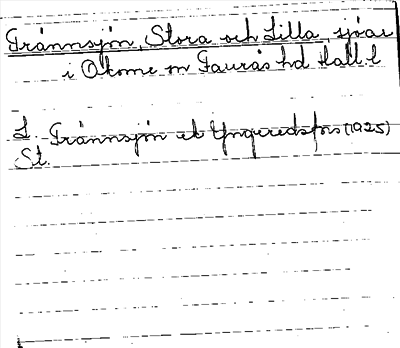 Frännsjön, Stora och Lilla, sjöar
i Okome sn Faurås hd Hall. l
L. Frännsjön ek Yngeredsfors (1925)
St.